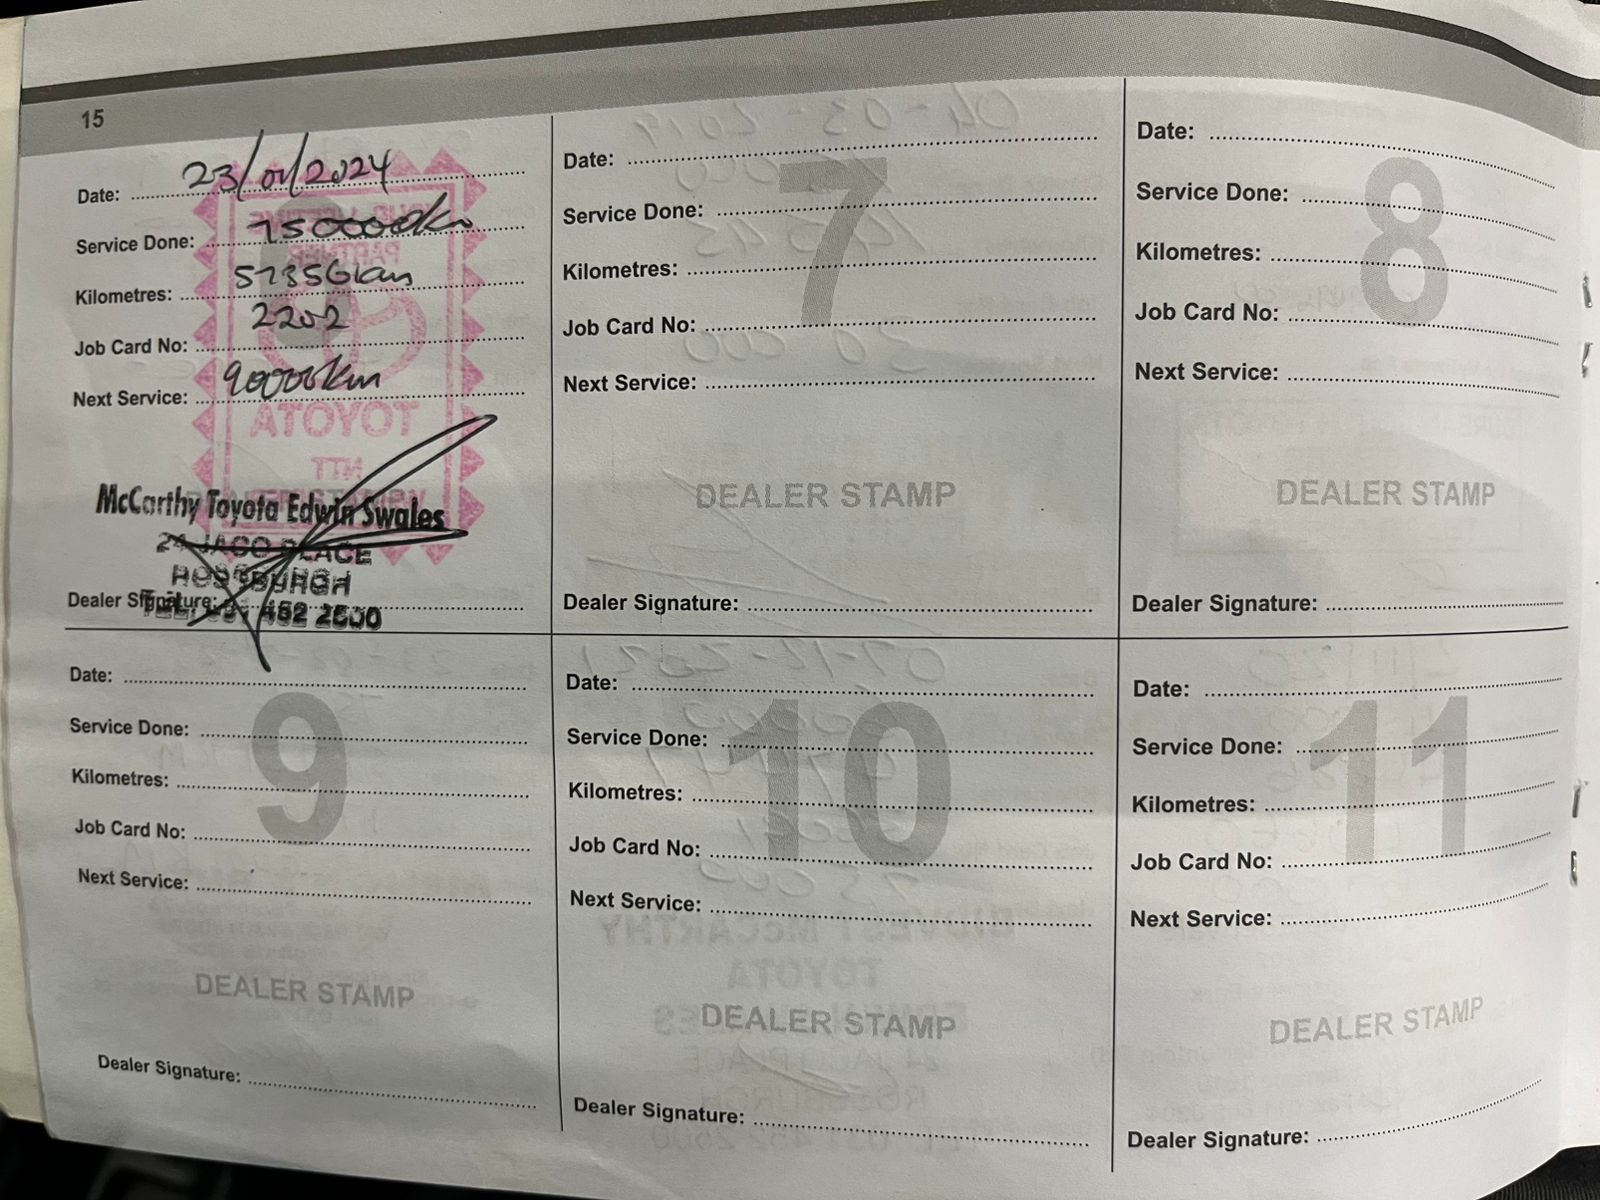 15
Date: 23/01/2024
Service Done: 75000km
Kilometres: 57356km
Job Card No: 2202
Next Service: 90000km
TOYOTA
McCarthy Toyota Edwin Swales
24 JACO PLACE
ROSSBURGH
Dealer Signature:
TEL: 031 452 2600
7
Date:
Service Done:
Kilometres:
Job Card No:
Next Service:
DEALER STAMP
Dealer Signature:
8
Date:
Service Done:
Kilometres:
Job Card No:
Next Service:
DEALER STAMP
Dealer Signature:
9
Date:
Service Done:
Kilometres:
Job Card No:
Next Service:
DEALER STAMP
Dealer Signature:
10
Date:
Service Done:
Kilometres:
Job Card No:
Next Service:
DEALER STAMP
Dealer Signature:
11
Date:
Service Done:
Kilometres:
Job Card No:
Next Service:
DEALER STAMP
Dealer Signature: